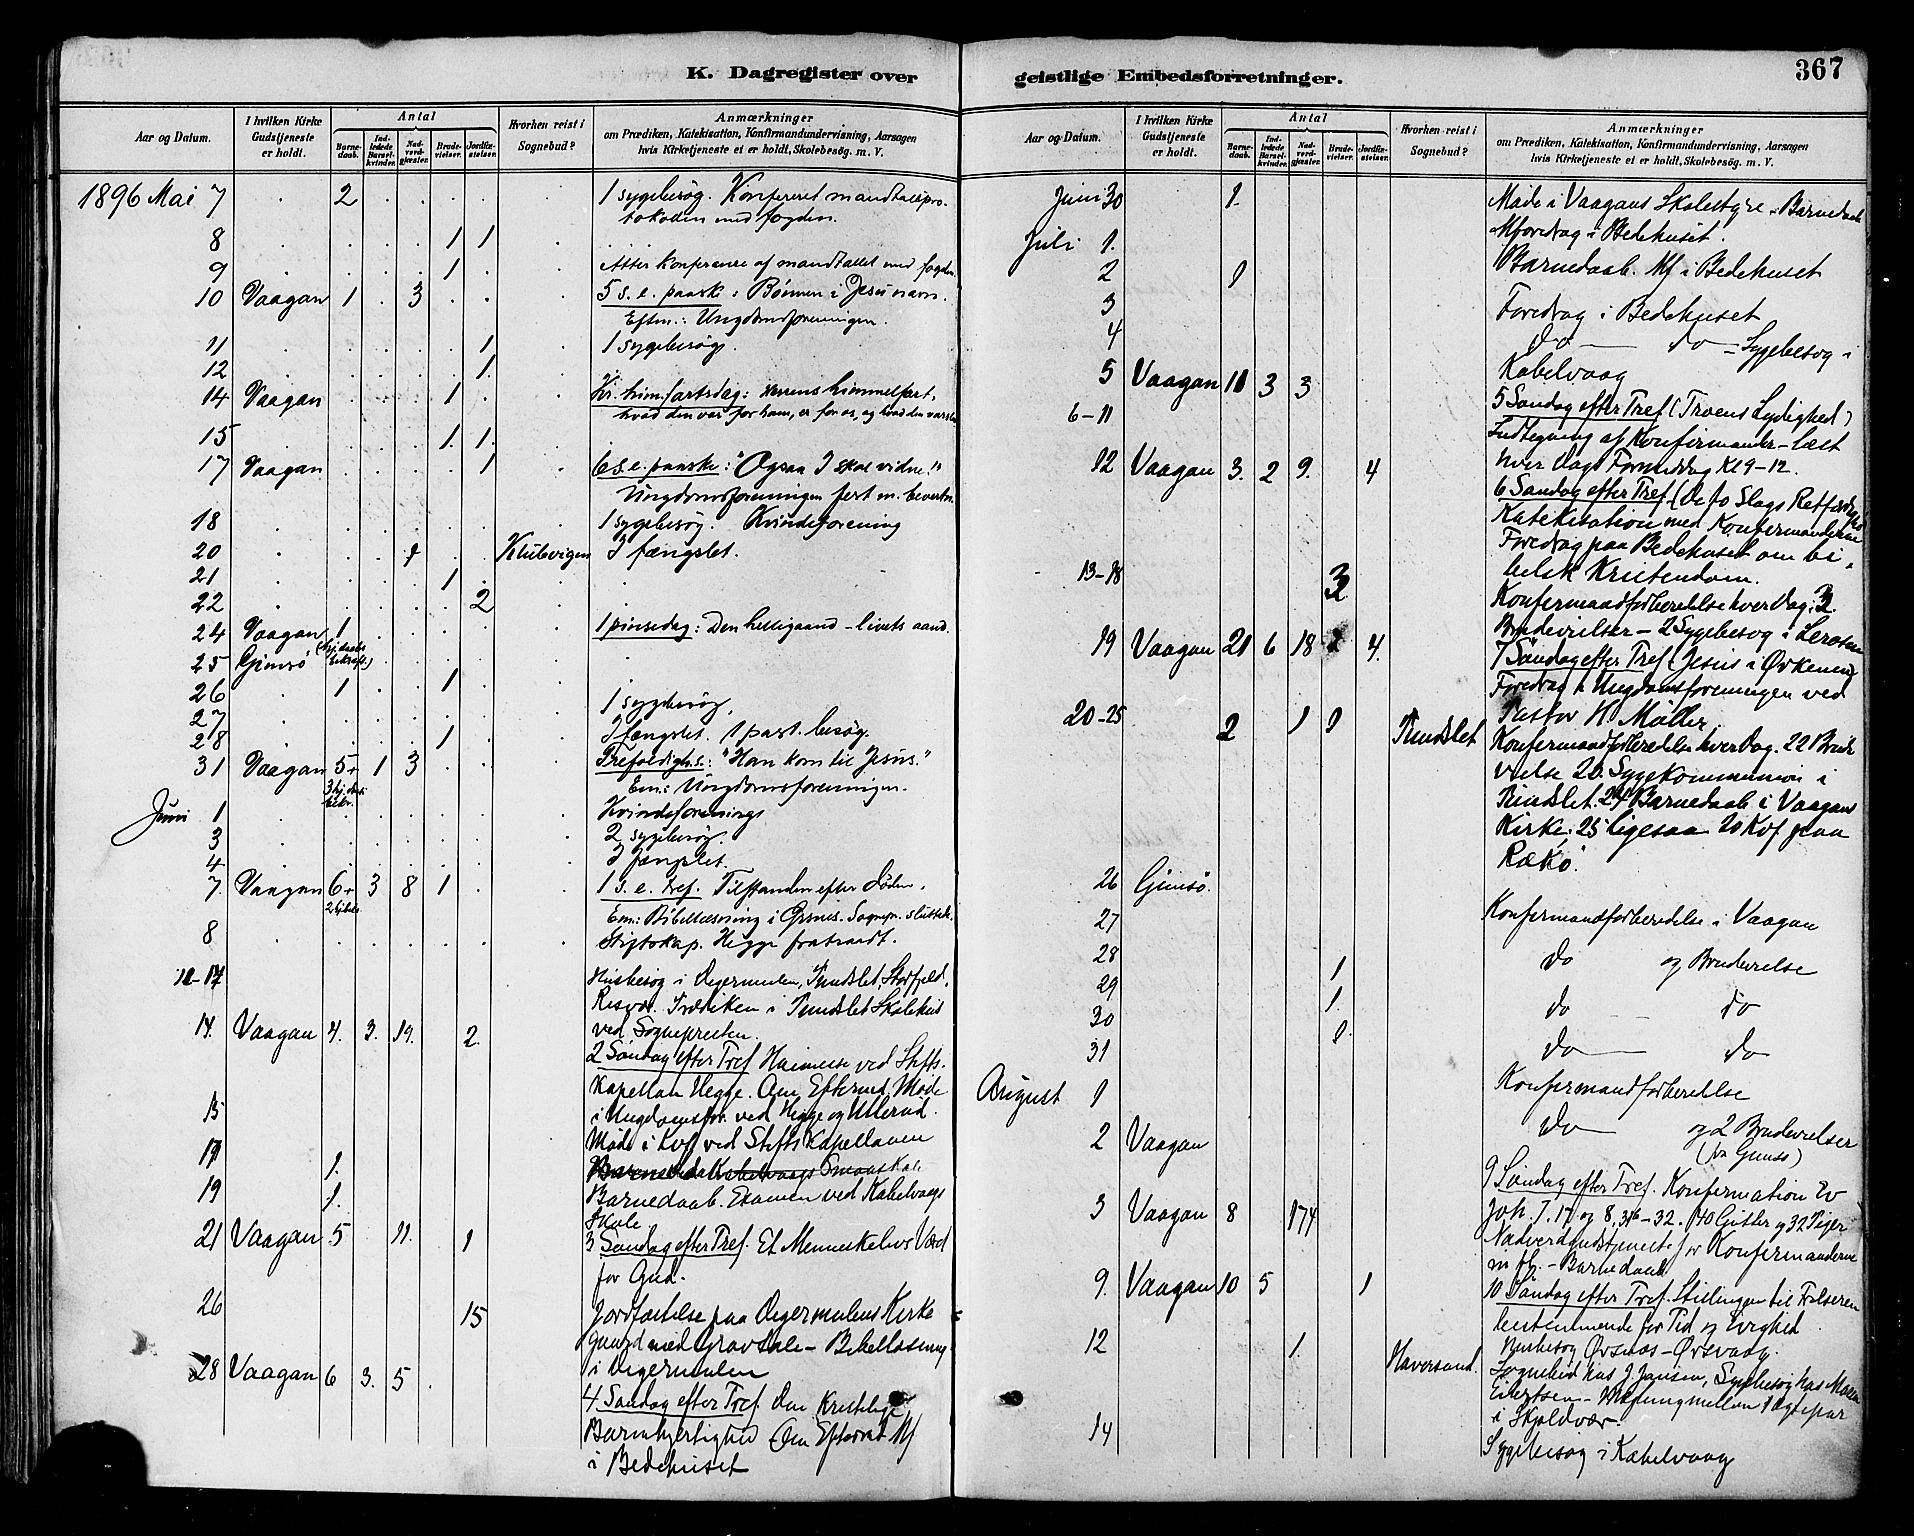 K. Dagregister over
Aar og Datum.
I hvilken Kirke Gudstjeneste er holdt.
Antal
Barnedaab.
Indledede Barselkvinder.
Nadverdgjæster.
Brudevielser.
Jordfæstelser.
Hvorhen reist i Sognebud?
Anmærkninger
om Prædiken, Katekisation, Konfirmandundervisning, Aarsagen
hvis Kirketjeneste ei er holdt, Skolebesøg. m. V.
1896 Mai 7 . 2 . . . . . 1 sygebesøg. Konfereret mandtalspro-
tokollen med fogden.
8 . . . . 1 1 .
9 . . . . 1 . . Atter konferense af mandtallet med fogden.
10 Vaagan 1 . 3 . . . 5 s. e. paaske: Bønnen i Jesu navn.
Eftm.: Ungdomsforeningen.
11 . . . . . 1 . 1 sygebesøg.
12 . . . . . 1 .
14 Vaagan . . . 1 . . Kr. himmfartsdag: Herrens himmelfart,
hvad den var for ham, er for os, og
15 . . . . 1 1 .
17 Vaagan . . . . 1 . 6 s. e. paaske: "Ogsaa I skal vidne."
Ungdomsforeningen fest m. bevertn.
18 . . . . . . . 1 sygebesøg. Kvindeforening
20 . . . 1 . . Klubvigen I fængslet.
21 . . . . 1 . .
22 . . . . . 2 .
24 Vaagan 1 . . . . . 1 pinsedag: Den helligaand – livets aand.
25 Gimsö (hjdaabs bekræft.) . . . .
26 . 1 . . 1 . .
27 . . . . . . . 1 sygebesøg.
28 . . . . 1 . . I fængslet. 1 past. besøg.
31 Vaagan 5+ 1 3 . . . Trefoldigh.s.: "Han kom til Jesus."
3 hj.daab bekr. Em.: Ungdomsforeningen.
Juni 1 . . . . . . . Kvindeforenings
3 . . . . . . . 2 sygebesøg.
4 . . . . . . . I fængslet.
7. Vaagan 6+ 3 8 1 . . 1 s. e. tref. Tilstanden efter døden.
Em: Bibellæsning i Ørsnes. Sognepr. sluttede.
8 . . . . . . . Stiftskap. Hegge fratraadt.
10-17 Husbesøg i Digermulen, Tendslet, Storfjeld,
Risvær. Prædiken i Tendslet Skolehus
ved Sognepresten.
14. Vaagan 4. 3. 19. 2.
2 Søndag efter Tref Höimesse ved Stifts-
kapellan Hegge. Om Eftermd. Møde
i Ungdomsfor. ved Hegge og Ullerud.
15 Møde i Kvf. ved Stifts Kapellanen
17 1. Smaaskole
19 1. Barnedaab. Examen ved Kabelvaags
Skole
21 Vaagan 5 11. 1 3 Søndag efter Tref. Et Menneskelivs Værd
for Gud.
26 15 Jordfæstelse paa Digermulens Kirke
gaard med Gravtale – Bibellæsning
i Digermulen
28 Vaagan 6 3. 5 . 4. Søndag efter Tref Den Kristelige
Barmhjertighed Om Efterm. Mf
i Bedehuset
geistlige Embedsforretninger.
367
Aar og Datum.
I hvilken Kirke Gudstjeneste er holdt.
Antal
Barnedaab.
Indledede Barselkvinder.
Nadverdgjæster.
Brudevielser.
Jordfæstelser.
Hvorhen reist i Sognebud?
Anmærkninger
om Prædiken, Katekisation, Konfirmandundervisning, Aarsagen
hvis Kirketjeneste ei er holdt, Skolebesøg. m. V.
Juni 30 1. Møde i Vaagans Skolestyre – Barnedaab
Juli 1. Mforedrag i Bedehuset.
2 1 Barnedaab. Mf i Bedehuset
3 Foredrag i Bedehuset
4 do — do – Sygebesøg i
Kabelvaag
5 Vaagan 11 3 3 5 Søndag efter Tref (Troens Lydighed)
6–11 Indtegning af Konfirmander – læst
hver Dags Formiddag Kl 9–12.
12 Vaagan 3. 2 9. 4 6 Søndag efter Tref (De to Slags Retfærdighed
Katekisation med Konfermanderne
Foredrag paa Bedehuset om bi-
belsk Kristendom.
13–18 3 Konfermandforberedelse hver Dag. 3
Brudevielser – 2 Sygebesøg i
19 Vaagan 21 6 18 4. 7 Søndag efter Tref (Jesus i Ørkenen)
Foredrag i Ungdomsforeningen ved
Pastor H. Møller
20–25 2 1 1 Tendslet Konfermandforberedelse hver Dag. 22 Brude
vielse 20. Sygekommunion i
Tendslet. 24 Barnedaab i Vaagans
Kirke; 25 ligesaa 20 Kvf paa
Rækø.
26 Gimsö.
27 Konfermandforberedelse i Vaagan
28 1 do og Brudevielse
29 1. do do
30 1. do — do
31 Konfermandforberedelse
August 1 do og 2 Brudevielser
2 Vaagan
9 Søndag efter Tref. Konfermation Ev
3 Vaagan 8 174 Joh. 7.17 og 8, 31–32. 40 Gutter og 32 Piger
Nadverdgudstjeneste for Konfermanderne
m fl. – Barnedaab
9. Vaagan 10 5 1 10 Søndag efter Tref. Stillingen til Frelseren
bestemmende for Tid og Evighed
12 1. Haversand Husbesøg Ørsnes – Ørsvaag.
Sognebud hos J Jansen, Sygebesøg hos
Eilertsen – Mægling mellem 1 Ægtepar
i Skjoldvær.
14 Sygebesøg i Kabelvaag